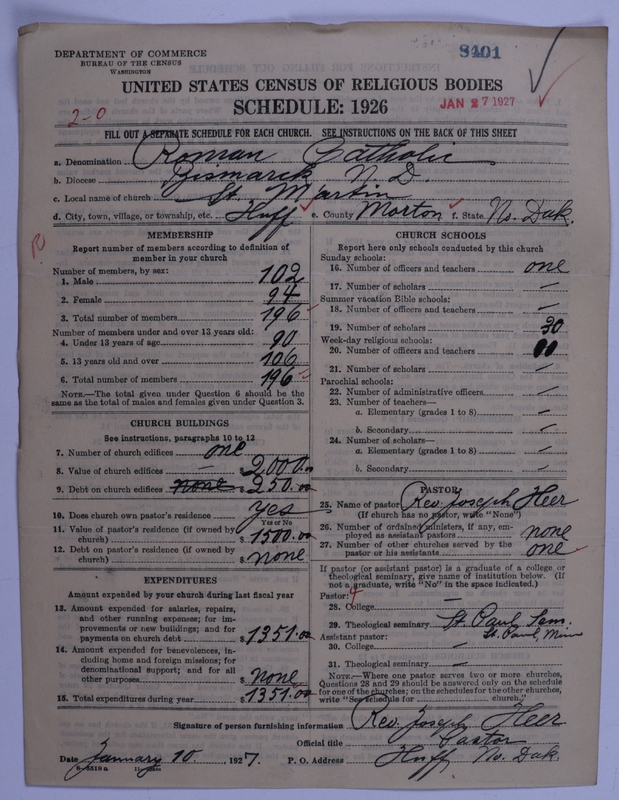 DEPARTMENT OF COMMERCE
BUREAU OF THE CENSUS
WASHINGTON
8401
UNITED STATES CENSUS OF RELIGIOUS BODIES
SCHEDULE: 1926
JAN 27 1927
2-0
FILL OUT A SEPARATE SCHEDULE FOR EACH CHURCH. SEE INSTRUCTIONS ON THE BACK OF THIS SHEET
a. Denomination Roman Catholic
b. Diocese Bismarck N. D.
c. Local name of church St. Martin
d. City, town, village, or township, etc. Huff e. County Morton f. State No. Dak.
MEMBERSHIP
Report number of members according to definition of
member in your church
Number of members, by sex:
1. Male 102
2. Female 94
3. Total number of members 196
Number of members under and over 13 years old:
4. Under 13 years of age 90
5. 13 years old and over 106
6. Total number of members 196
NOTE.—The total given under Question 6 should be
the same as the total of males and females given under Question 3.
CHURCH BUILDINGS
See instructions, paragraphs 10 to 12
7. Number of church edifices one
8. Value of church edifices — $2,000.00
9. Debt on church edifices none $250.00
10. Does church own pastor's residence yes
Yes or No
11. Value of pastor's residence (if owned by
church) $1500.00
12. Debt on pastor's residence (if owned by
church) $none
EXPENDITURES
Amount expended by your church during last fiscal year
13. Amount expended for salaries, repairs,
and other running expenses; for im-
provements or new buildings; and for
payments on church debt $1351.00
14. Amount expended for benevolences, in-
cluding home and foreign missions; for
denominational support; and for all
other purposes $none
15. Total expenditures during year $1351.00
CHURCH SCHOOLS
Report here only schools conducted by this church
Sunday schools:
16. Number of officers and teachers one
17. Number of scholars —
Summer vacation Bible schools:
18. Number of officers and teachers —
19. Number of scholars 30
Week-day religious schools:
20. Number of officers and teachers
21. Number of scholars —
Parochial schools:
22. Number of administrative officers —
23. Number of teachers—
a. Elementary (grades 1 to 8) —
b. Secondary —
24. Number of scholars—
a. Elementary (grades 1 to 8) —
b. Secondary —
PASTOR
25. Name of pastor Rev. Joseph Heer
(If church has no pastor, write "None")
26. Number of ordained ministers, if any, em-
ployed as assistant pastors none
27. Number of other churches served by the
pastor or his assistants one
If pastor (or assistant pastor) is a graduate of a college or
theological seminary, give name of institution below. (If
not a graduate, write "No" in the space indicated.)
Pastor: 4
28. College —
29. Theological seminary St. Paul Sem.
St. Paul, Minn
Assistant pastor:
30. College —
31. Theological seminary —
NOTE.—Where one pastor serves two or more churches,
Questions 28 and 29 should be answered only on the schedule
for one of the churches; on the schedules for the other churches,
write "See schedule for church."
Signature of person furnishing information Rev. Joseph Heer
Official title Pastor
Date January 10, 1927. P. O. Address Huff No. Dak.